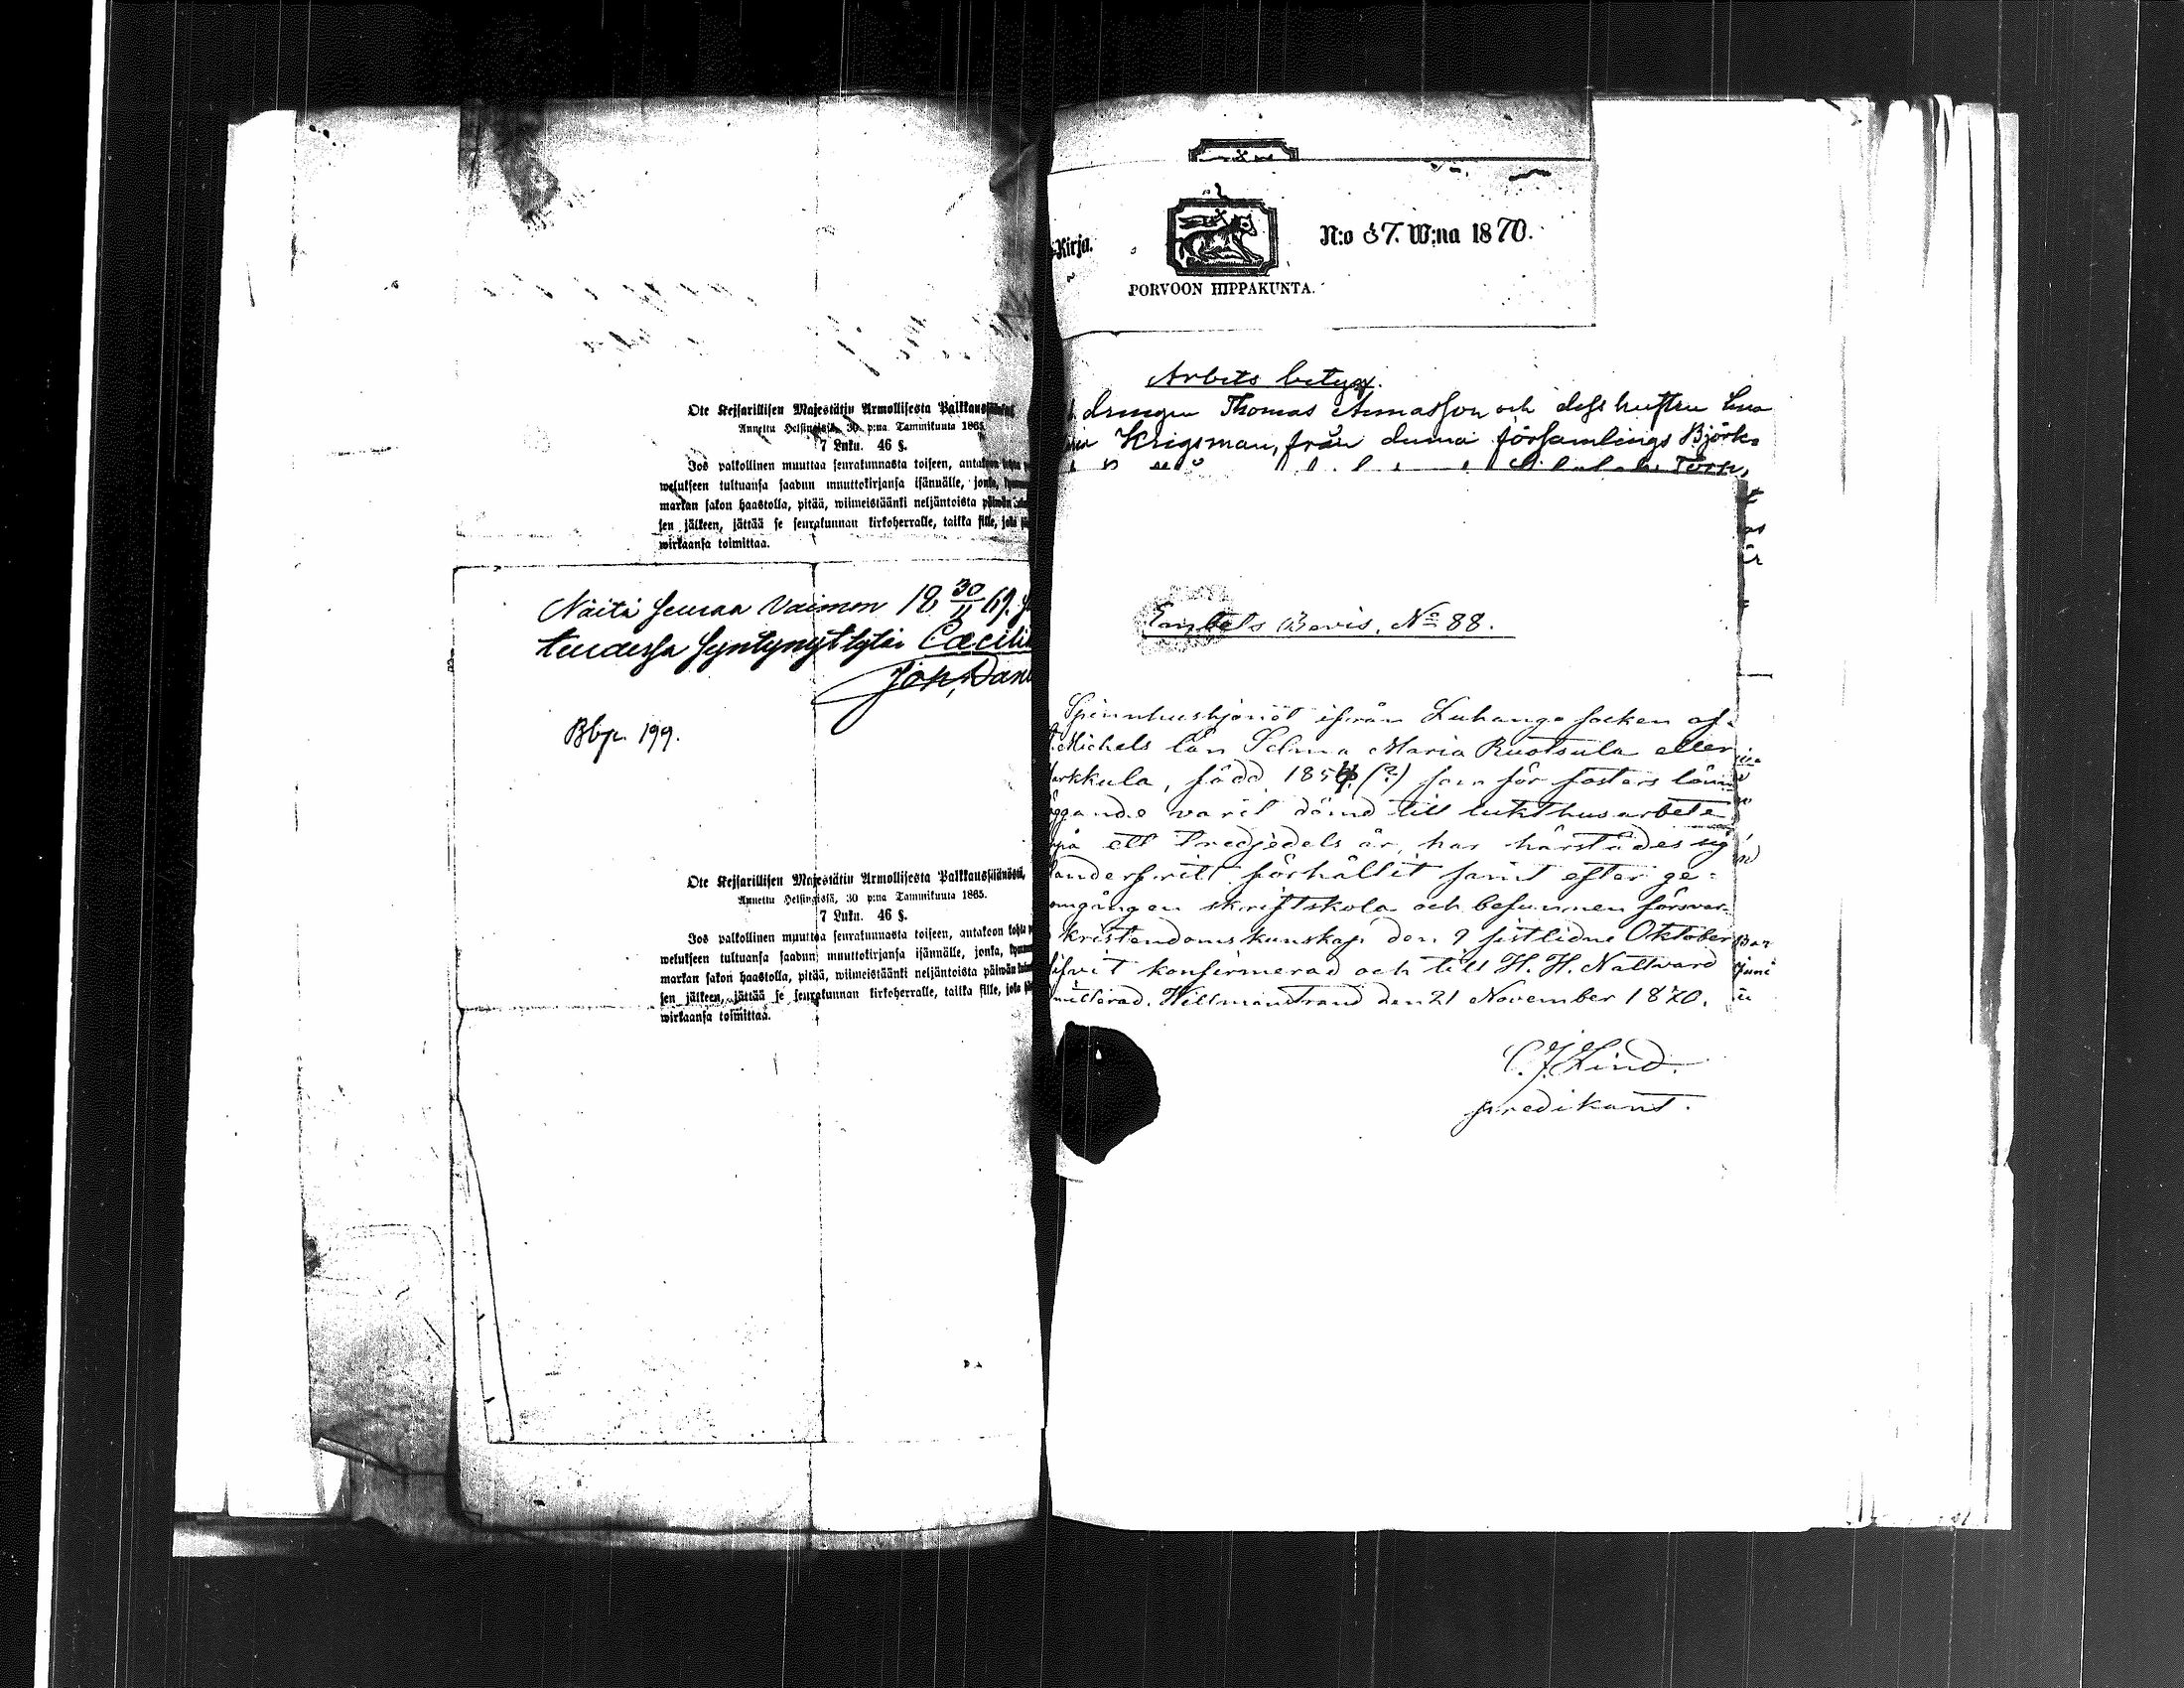 Ote Keisarillisen Majestätin Armollisesta Palkkaus
Annettu Helsingissä, 30 p:na Tammikuuta 1865
7 Luku. 46 §.
Jos palkollinen muuttaa seurakunnasta toiseen, antakoon
welukseen tultuansa saadun muuttokirjansa isännälle, jonka,
markan sakon haastolla, pitää, wiimeistäänki neljäntoista päiwän
sen jälkeen, jättää se seurakunnan kirkoherralle, taikka sille, joka
wirkaansa toimittaa.
Näitä seuraa Vaimon 18 30/11 69.
tendessa syntynyt tytär Cæcilia
Joh, Dan
Bbp. 199.
Ote Keisarillisen Majestätin Armollisesta Palkkaussäännöstä,
Annettu Helsingissä, 30 p:na Tammikuuta 1865.
7 Luku. 46 §.
Jos palkollinen muuttaa seurakunnasta toiseen, antakoon kohta
welukseen tultuansa saadun muuttokirjansa isännälle, jonka,
markan sakon haastolla, pitää, wiimeistäänki neljäntoista päiwän
sen jälkeen, jättää se seurakunnan kirkoherralle, taikka sille, joka
wirkaansa toimittaa.
Kirja.
N:o 37. W:na 1870.
PORVOON HIPPAKUNTA.
Arbets betyg.
drengen Thomas Annasson och dess hustru
Krigsman, från denna församlings Björk-
Embets Bevis, No 88.
Spinnhushjonet ifrån Luhango socken af
Michels län Selma Maria Ruotsula eller
Markkula, född 1854 (?) som för fosters lönn
läggande varit dömd till tukthusarbete
på ett Tredjedels år, har härstädes sig
klanderfritt förhållit samt efter ge-
nomgången skriftskola och befunnen försvar-
kristendoms kunskap den 9 sistlidne Oktober
blifvit konfirmerad och till H. H. Nattvard
mitterad. Willmanstrand den 21 November 1870.
C. J. Lind.
predikant.